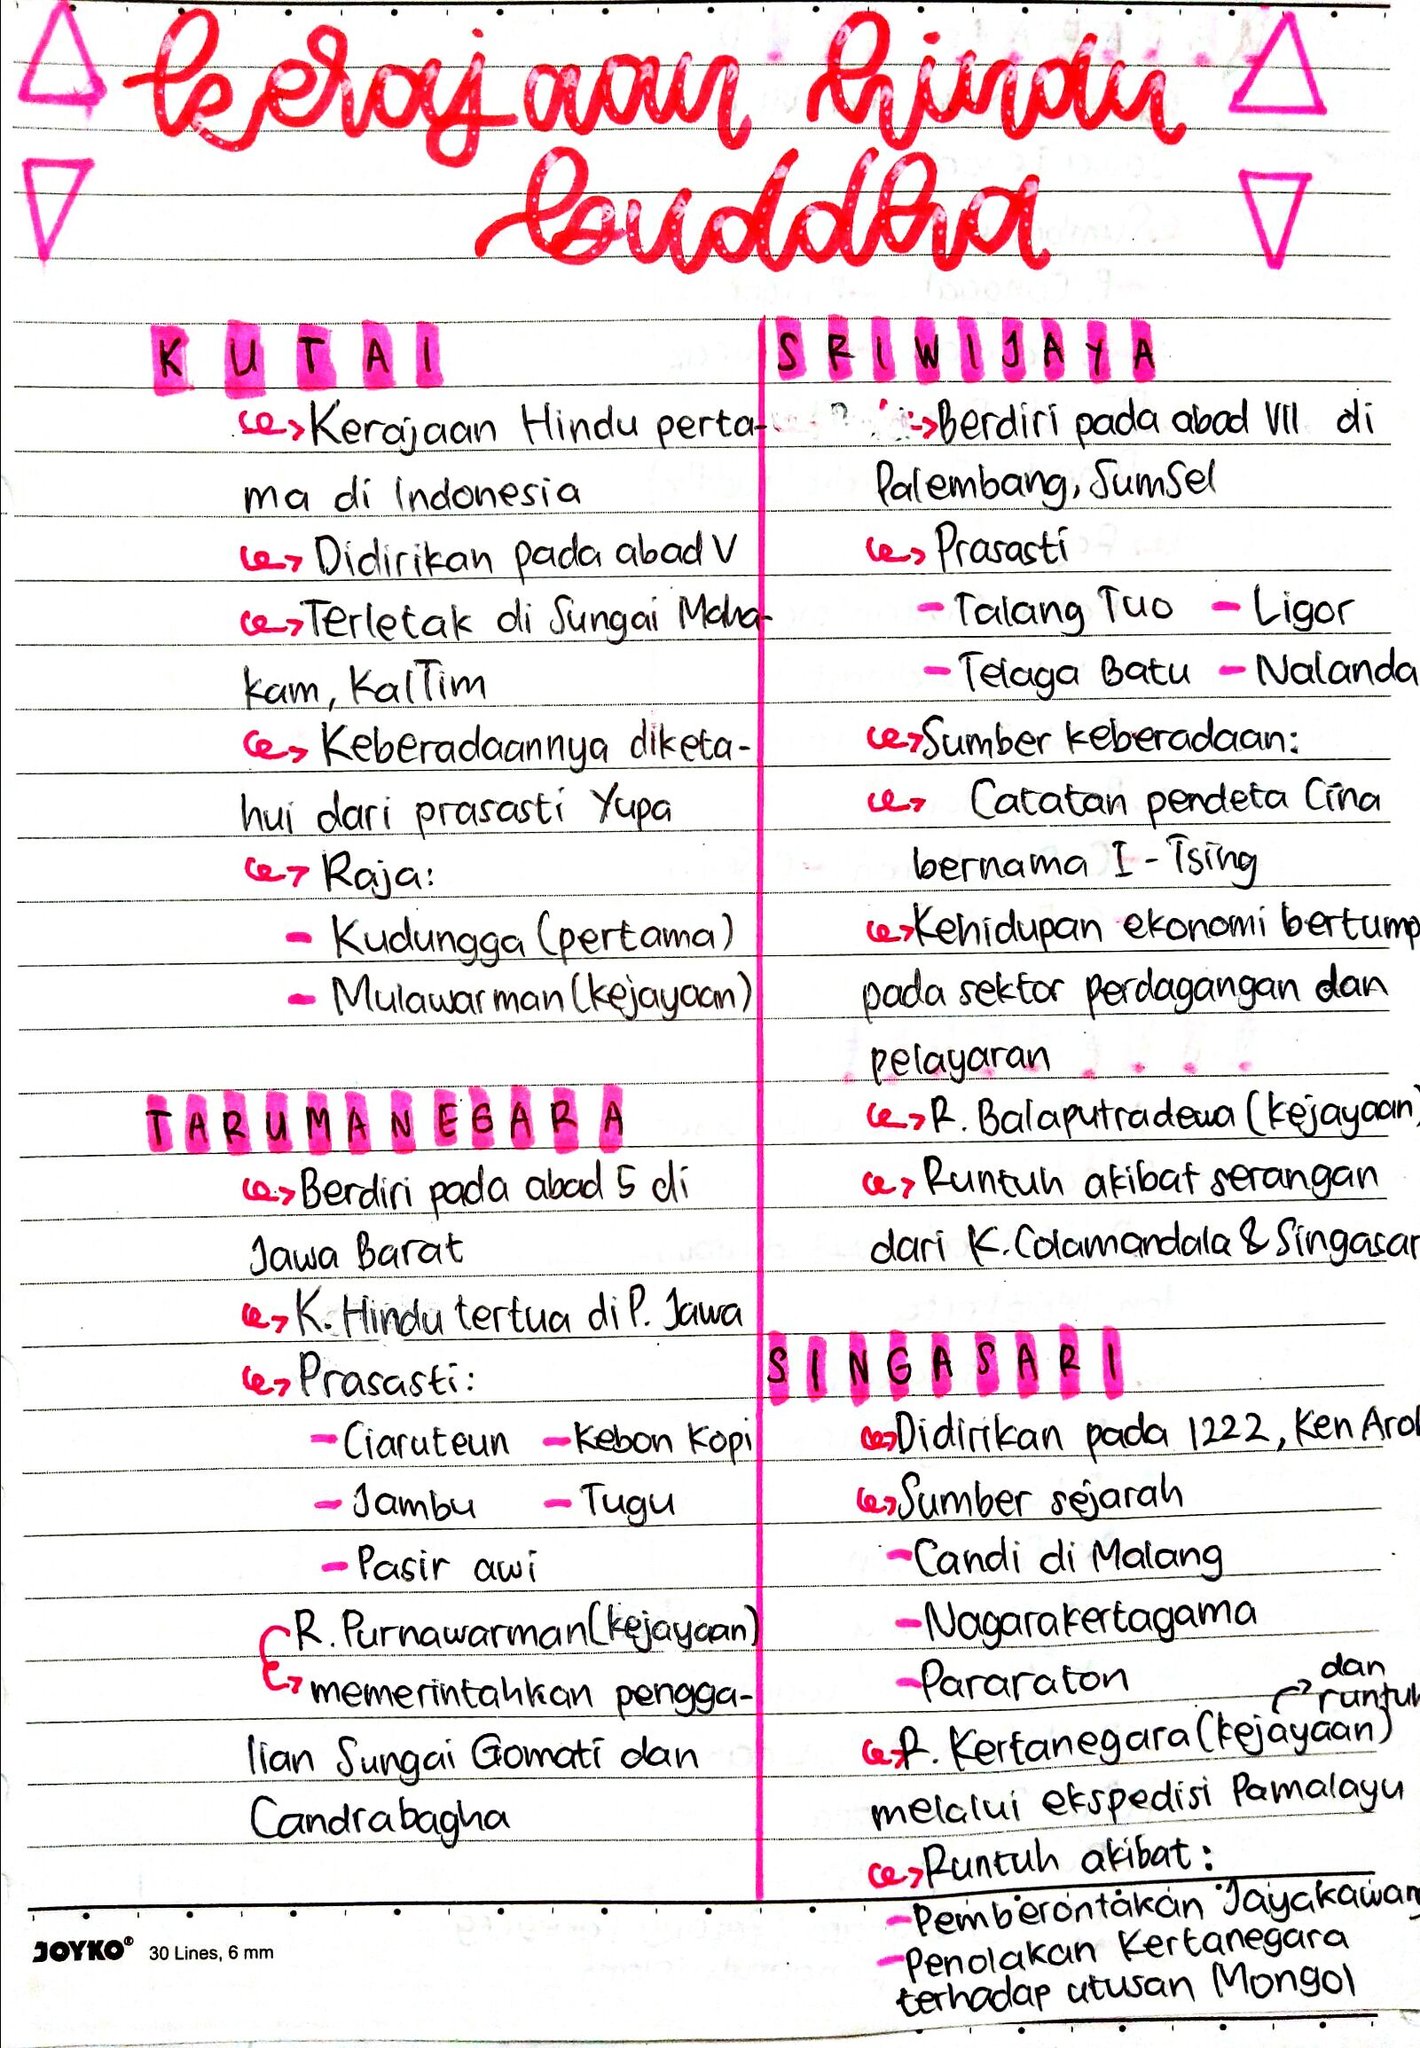 kerajaan hindu
buddha
KUTAI
Kerajaan Hindu perta-
ma di Indonesia
Didirikan pada abad V
Terletak di Sungai Maha-
kam, KalTim
Keberadaannya diketa-
hui dari prasasti Yupa
Raja:
- Kudungga (pertama)
- Mulawarman (kejayaan)
TARUMANEGARA
Berdiri pada abad 5 di
Jawa Barat
K. Hindu tertua di P. Jawa
Prasasti:
- Ciaruteun - Kebon Kopi
- Jambu - Tugu
- Pasir awi
R. Purnawarman (kejayaan)
memerintahkan pengga-
lian Sungai Gomati dan
Candrabagha
SRIWIJAYA
Berdiri pada abad VII di
Palembang, SumSel
Prasasti
- Talang Tuo - Ligor
- Telaga Batu - Nalanda
Sumber keberadaan:
Catatan pendeta Cina
bernama I - Tsing
Kehidupan ekonomi bertump
pada sektor perdagangan dan
pelayaran
R. Balaputradewa (kejayaan)
Runtuh akibat serangan
dari K. Colamandala & Singasar
SINGASARI
Didirikan pada 1222, Ken Arok
Sumber sejarah
- Candi di Malang
- Nagarakertagama
- Pararaton
dan
runtuh
R. Kertanegara (kejayaan)
melalui ekspedisi Pamalayu
Runtuh akibat:
- Pemberontakan Jayakawang
- Penolakan Kertanegara
terhadap utusan Mongol
JOYKO® 30 Lines, 6 mm